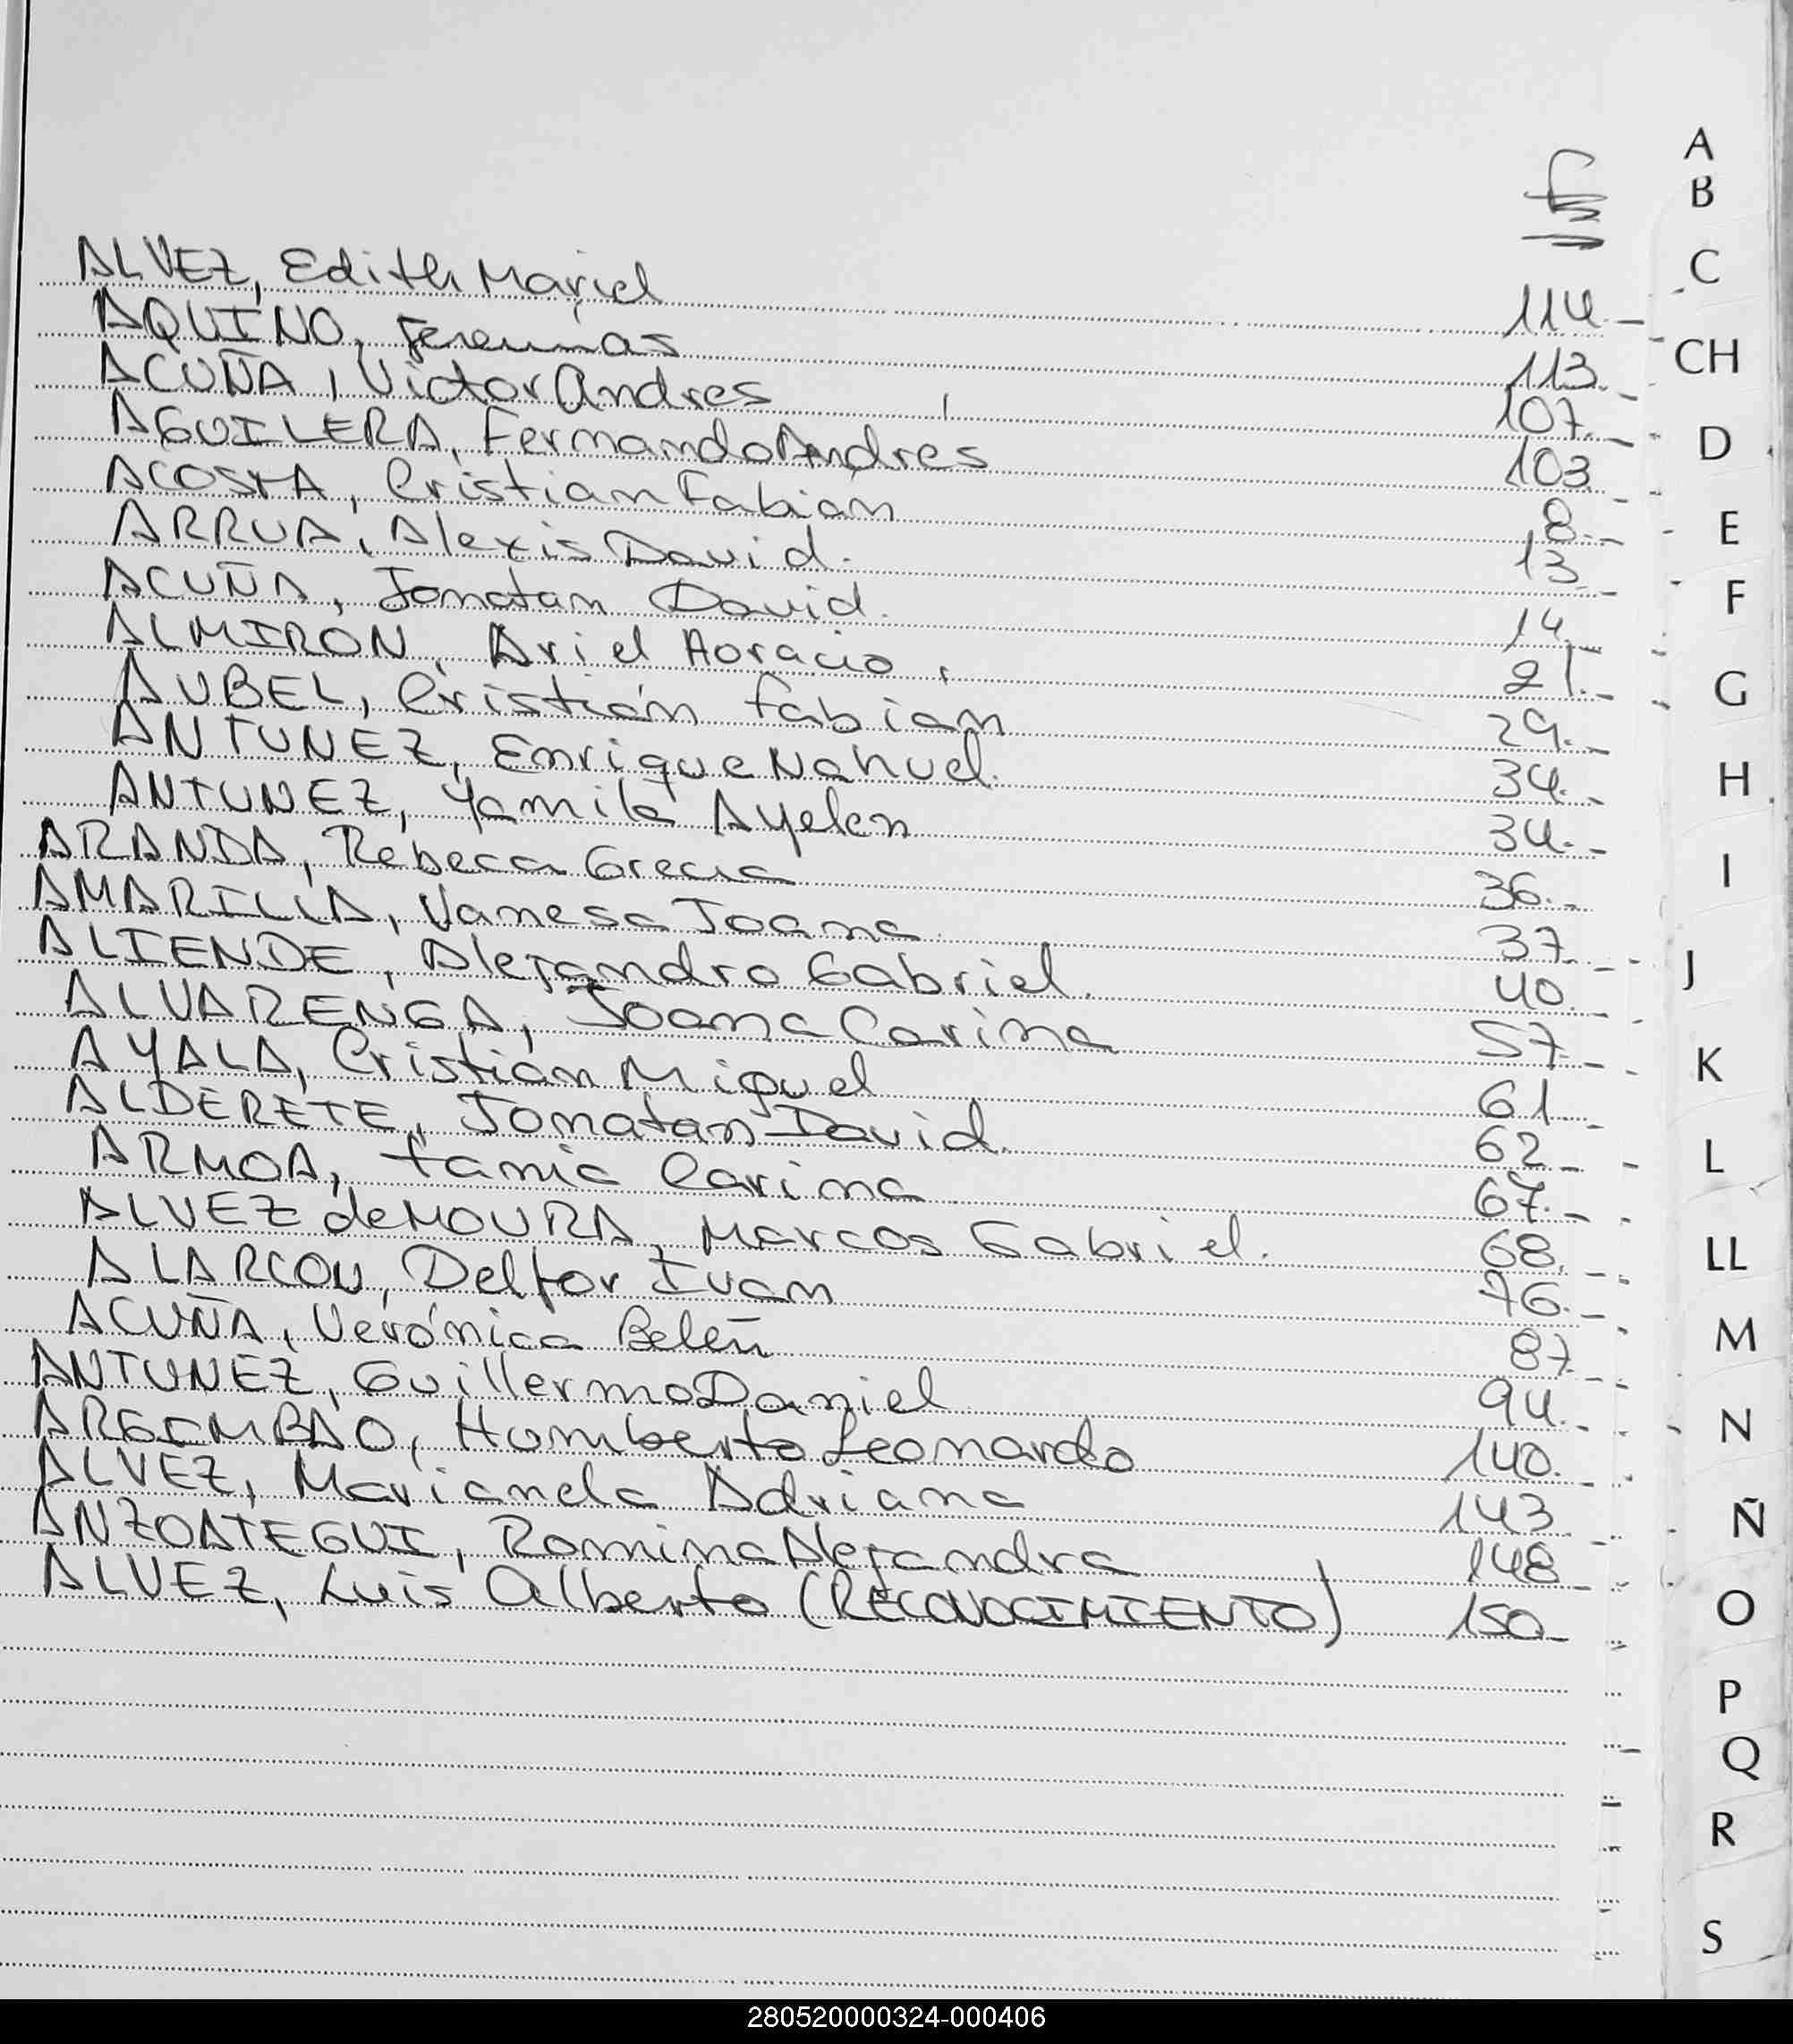 fs
ALVEZ, Edith Mariel 114.-
AQUINO, Jeremias 113.-
ACUÑA, Victor Andres 107.-
AGUILERA, Fernando Andres 103.-
ACOSTA, Cristian Fabian 8.-
ARRUA, Alexis David. 13.-
ACUÑA, Jonatan David. 14.-
ALMIRON, Ariel Horacio, 21.-
AUBEL, Cristián Fabian 29.-
ANTUNEZ, Enrique Nahuel. 34.-
ANTUNEZ, Yamila Ayelen 34.-
ARANDA, Rebeca Grecia 36.-
AMARILLA, Vanesa Joana 37.-
ALIENDE, Alejandro Gabriel. 40.-
ALVARENGA, Joana Carina 57.-
AYALA, Cristián Miguel 61.-
ALDERETE, Jonatan David. 62.-
ARMOA, Tania Carina 67.-
ALVEZ de MOURA, Marcos Gabriel. 68.-
ALARCON, Delfor Ivan 76.-
ACUÑA, Verónica Belén 87.-
ANTUNEZ, Guillermo Daniel 94.-
ARGIMBAO, Humberto Leonardo 140.-
ALVEZ, Marianela Adriana 143.-
ANZOATEGUI, Romina Alejandra 148.-
ALVEZ, Luis Alberto (RECONOCIMIENTO) 150.-
A
B
C
CH
D
E
F
G
H
I
J
K
L
LL
M
N
Ñ
O
P
Q
R
S
280520000324-000406